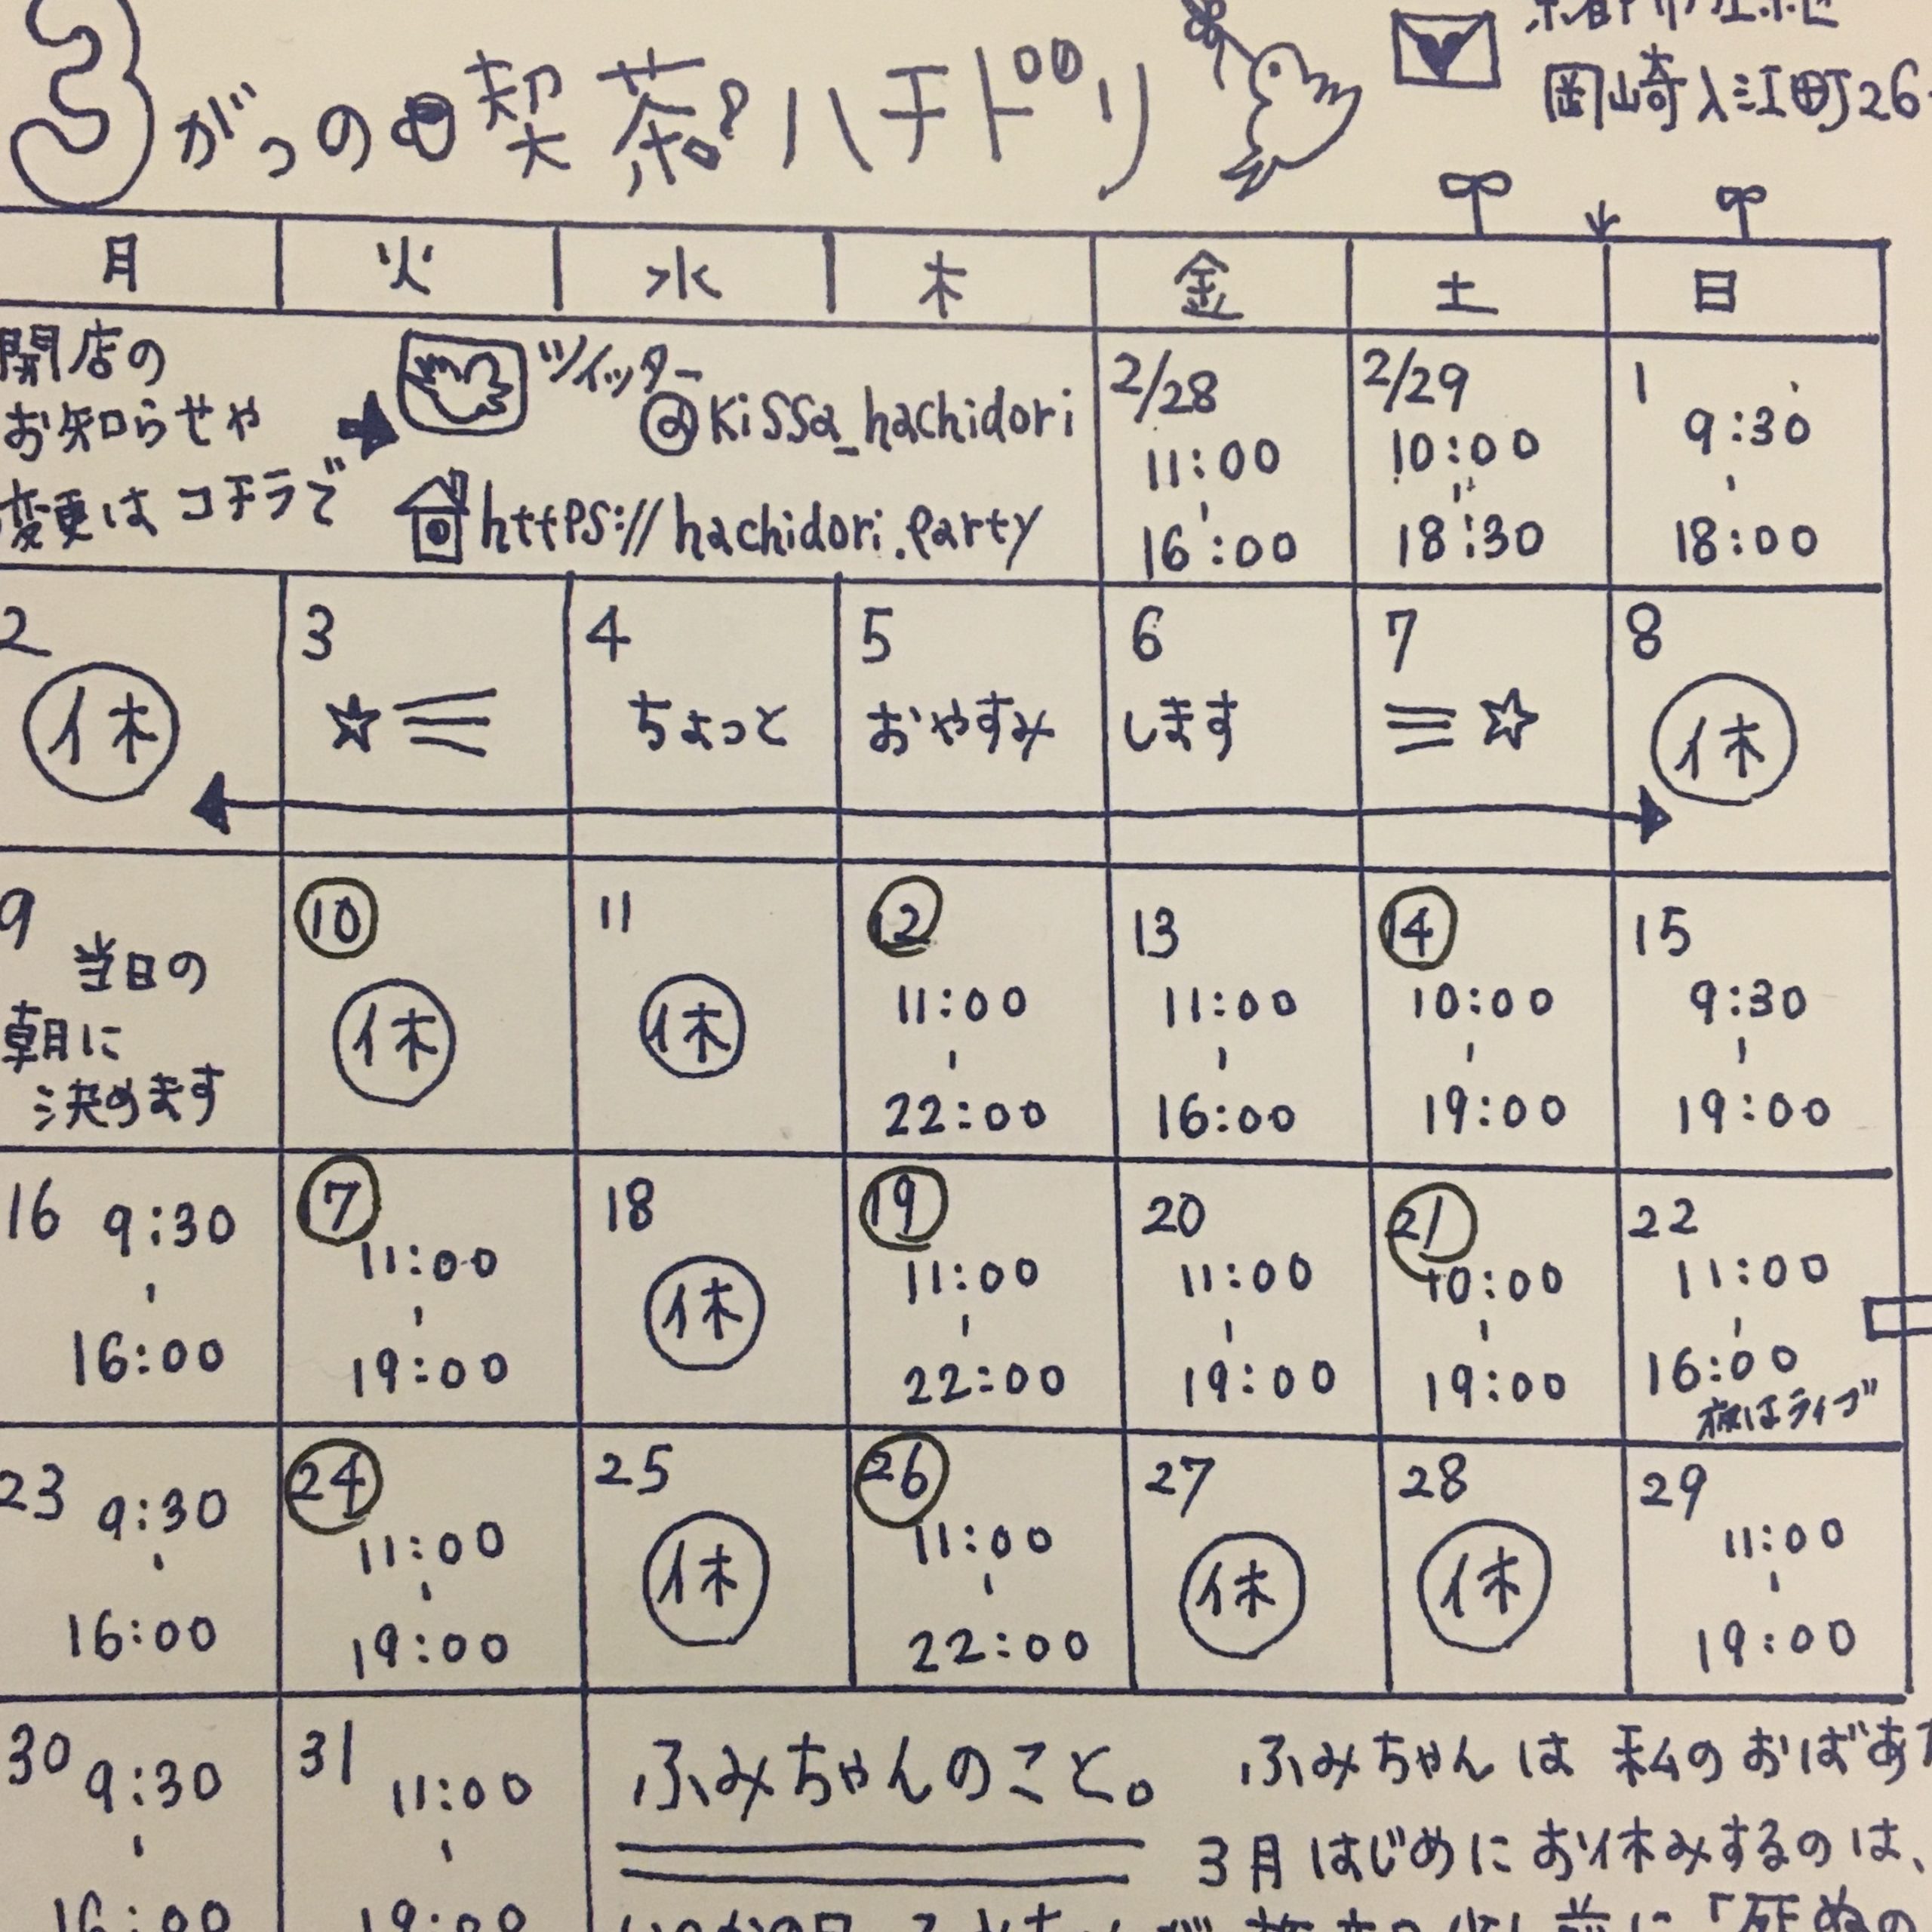 3がつの喫茶ハチドリ
岡崎入江町26
月 火 水 木 金 土 日
開店の
お知らせや
変更はコチラで
ツイッター
@kissa_hachidori
https://hachidori.party
2/28
11:00
16:00
2/29
10:00
18:30
1
9:30
18:00
2
休
3
4
ちょっと
5
おやすみ
6
します
7
8
休
9
当日の
朝に
決めます
10
休
11
休
12
11:00
22:00
13
11:00
16:00
14
10:00
19:00
15
9:30
19:00
16
9:30
16:00
17
11:00
19:00
18
休
19
11:00
22:00
20
11:00
19:00
21
10:00
19:00
22
11:00
16:00
夜はライブ
23
9:30
16:00
24
11:00
19:00
25
休
26
11:00
22:00
27
休
28
休
29
11:00
19:00
30
9:30
16:00
31
11:00
19:00
ふみちゃんのこと。
ふみちゃんは私のおばあ
3月はじめにお休みするのは、